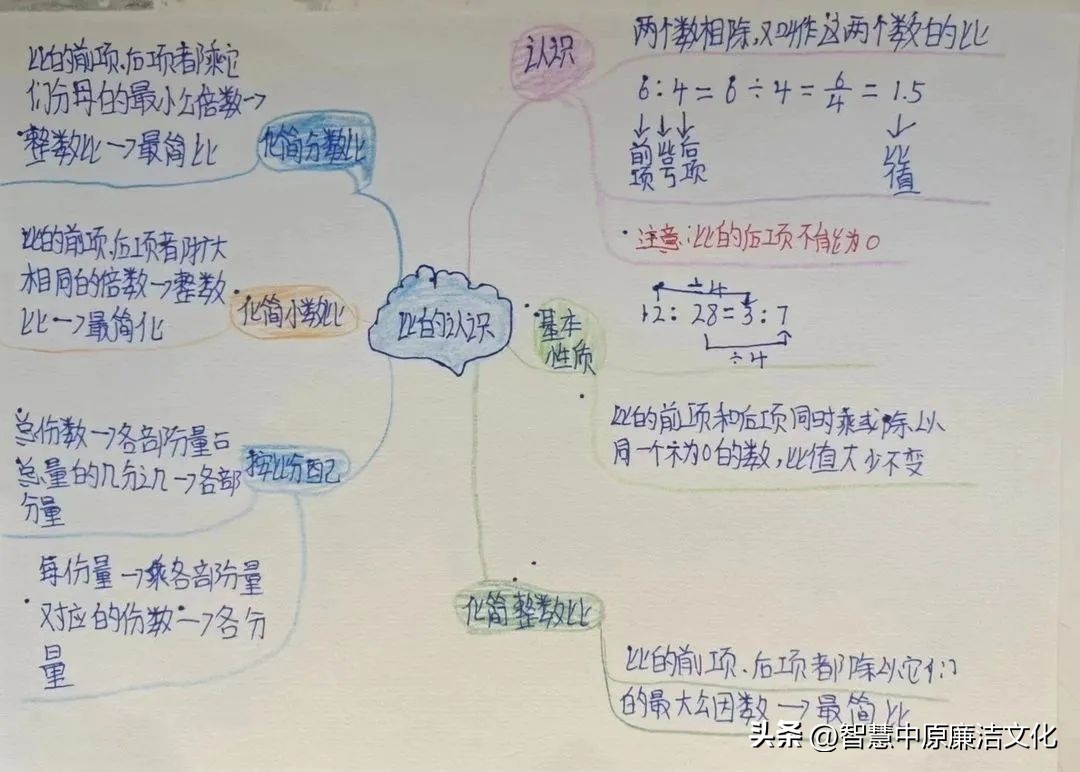 比的认识
认识
两个数相除,又叫作这两个数的比
6:4=6÷4=6/4=1.5
前项 比号 后项 比值
注意:比的后项不能为0
基本
性质
÷4
12:28=3:7
÷4
比的前项和后项同时乘或除以
同一个不为0的数,比值大小不变
化简整数比
比的前项、后项都除以它们
的最大公因数→最简比
化简分数比
比的前项、后项都乘它
们分母的最小公倍数→
整数比→最简比
化简小数比
比的前项、后项都扩大
相同的倍数→整数
比→最简化
按比分配
总份数→各部分量占
总量的几分之几→各部
分量
每份量→乘各部分量
对应的份数→各分
量
头条@智慧中原廉洁文化